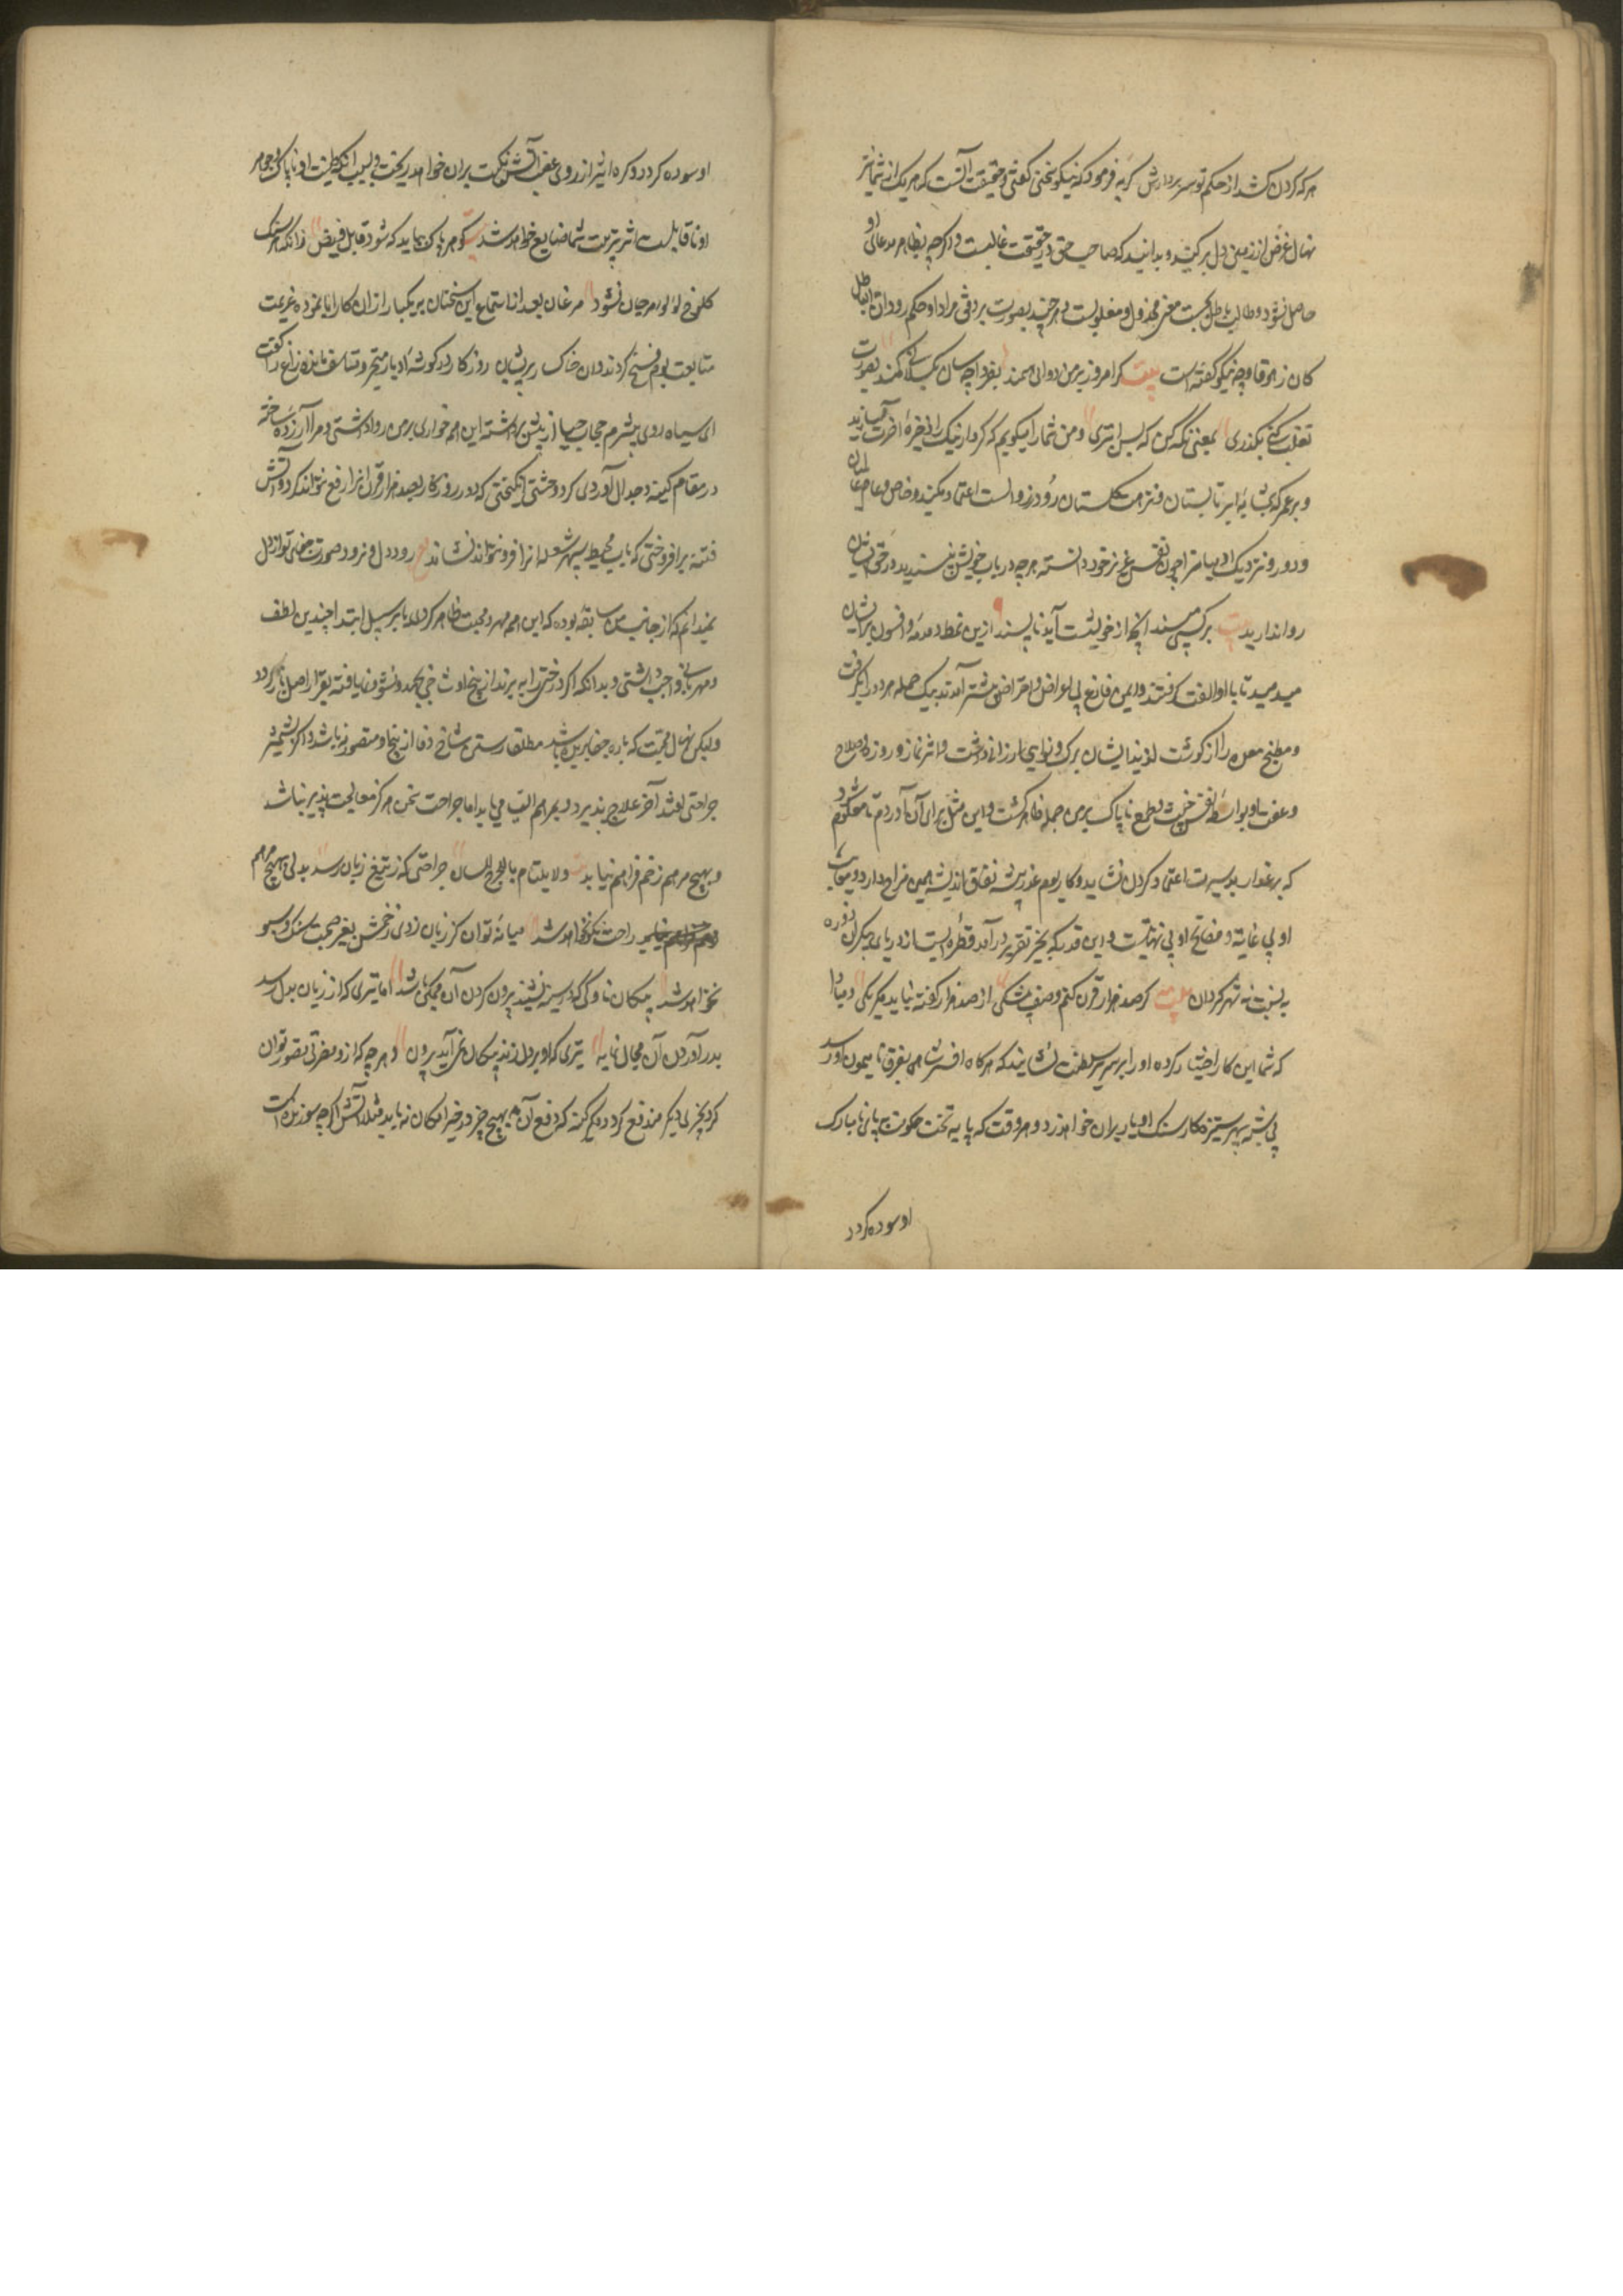 هر که گردن کشد از حکم تو سر بردارش گربه فرمود که نیکو سخنی گفتی و حقیقت آنست که هر یک از شما نیز
نهال غرض از زمین دل برکنید و بدانید که صاحب حق در حقیقت غالبست و اگرچه بظاهر مدعای او
حاصل نشود و طالب باطل مخذول و مغلوبست هر چند بصورت بر وفق مراد او حکم رود ان الباطل
کان زهوقا و چه نیکو گفته است بیت گر امروز بر من دوانی سمند بفردا چه سان
بگذری معنی که پس ابتری و من شما را میکویم که کردار نیک را ذخیره آخرت سازید
و بر عمر که بمثابه ابر تابستان و نزهت گلستان زود زوالست اعتماد مکنید و خاص و عام عالمیان
و دور و نزدیک را چون نفس عزیز خود دانسته هر چه در باب خویش نپسندید در حق ایشان
روا ندارید بیت بر کسی مپسند آنچه از خویشت آید ناپسند ازین نمط دمدمه و افسون بر ایشان
میدمید تا با او الفت گرفتند و ایمن و فارغ بی اعراض پیشتر آمدند بیک حمله هر دو را بگرفت
و مطبخ معده را از گوشت لذیذ ایشان برگ و نوایی ارزانی داشت و اثر نماز و روزه و صلاح
و عفت او بواسطه نفس خبیث و طمع ناپاک برین جمله ظاهر گشت و این مثل برای آن آوردم تا معلوم شود
که بر غدار بدسیرت اعتماد کردن نشاید و کار بوم غدرپیشه نفاق اندیشه همین مزاج دارد و معایب
او بی غایت و مفاتح او بی نهایتست و این قدر که بحیز تقریر درآمد قطره ایست از دریای بیکران و ذره
به نسبت نه شهر گردان بیت گر صد هزار قرن کنم وصف از صد هزار گونه نیاید مگر یکی و مبادا
که شما این کار اختیار کرده او را بر سریر سلطنت نشانید که هرگاه افسر شاهی بفرق نامیمون او رسد
بی شبهه سپهر ستیزه کار سنگ ادبار بران خواهد زد و هر وقت که پایه تخت حکومت بپای نامبارک
او سوده گردد
او سوده گردد کره اثیر از روی غضب آتش نکبت بران خواهد ریخت و بسبب آنکه طینت او ناپاک و جوهر
او ناقابلست اثر تربیت شما ضایع خواهد شد بیت گوهر پاک بباید که شود قابل فیض زانکه هر سنگ
کلوخی لؤلؤ و مرجان نشود مرغان بعد از استماع این سخنان به یکبار از آن کار ابا نموده عزیمت
متابعت بوم فسخ کردند و آن خاکسار پریشان روزگار در گوشه ادبار متحیر و متاسف مانده زاغ را گفت
ای سیاه روی بیشرم حجاب حیا از پیش برداشته این همه خواری بر من روا داشتی و مرا آزرده ساخته
در مقام کینه و جدال آوردی و وحشتی انگیختی که دور روزگار بصد هزار قرن آنرا رفع نتواند کرد و آتش
فتنه برافروختی که آب محیط سپهر شعله آنرا فرو نتواند نشاند ع رود دل و نرود صورت جفای تو از دل
نمیدانم که از جانب من سابقه بوده که این همه مهر و محبت ظاهر کردی یا بر سبیل ابتدا چندین لطف
و مهربانی واجب داشتی و بدانکه اگر درختی را ببرند از بیخ او شاخی بجهد و نشو و نما یافته بقرار اصل باز گردد
ولیکن نهال محبت که باره جفا بریده شد مطلقا رستن شاخ وفا از بیخ او متصور نباشد و اگر بشمشیر
جراحتی افتد آخر علاج پذیرد و بمرهم التیام می یابد اما جراحت سخن هرگز معالجت پذیر نباشد
و بهیچ مرهم زخم فراهم نیاید بیت ولا یلتام ما جرح اللسان جراحتی که ز تیغ زبان رسد بدلی بهیچ مرهم
راحت نکو نخواهد شد میانه تو آن کز زبان زدی زخمش بغیر صحبت سنگ و سبو
نخواهد شد پیکان ناوکی که در سینه نشیند بیرون کردن آن ممکن باشد اما تیری که از زبان بدل رسد
بدر آوردن آن محال نماید تیری که او بر دل زند پیکان نمی آید برون و هر چه که ازو مضرتی تصور توان
کرد بچیزی دیگر مندفع گردد مگر کینه که دفع آن بهیچ چیز در حیز امکان نیاید مثلا آتش اگرچه سوزنده است